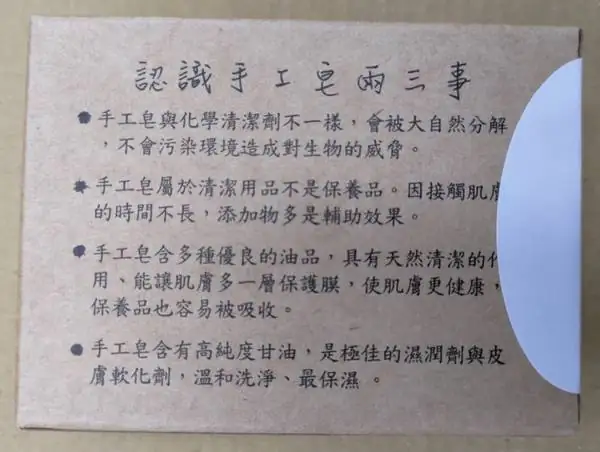 認識手工皂兩三事
● 手工皂與化學清潔劑不一樣，會被大自然分解
，不會污染環境造成對生物的威脅。
● 手工皂屬於清潔用品不是保養品。因接觸肌
的時間不長，添加物多是輔助效果。
● 手工皂含多種優良的油品，具有天然清潔的
用、能讓肌膚多一層保護膜，使肌膚更健康，
保養品也容易被吸收。
● 手工皂含有高純度甘油，是極佳的濕潤劑與皮
膚軟化劑，溫和洗淨、最保濕。